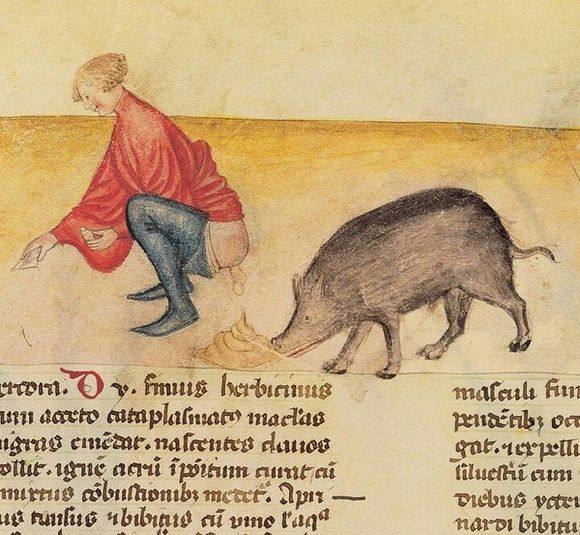 ertora. Dy. fimus herbicinius
um acceto cataplasmatꝰ maclas
nigras emēdat. nascentes clauos
ollit. ignē acrū īpōitum curat cū
mixtus cōbustionibꝫ medet. Apri —
us tunsus ⁊ bibitus cū uino
masculi fim
pendētibꝫ
gat. ⁊ expelli
siluestrū cum
diebus ycter
nardi bibitu